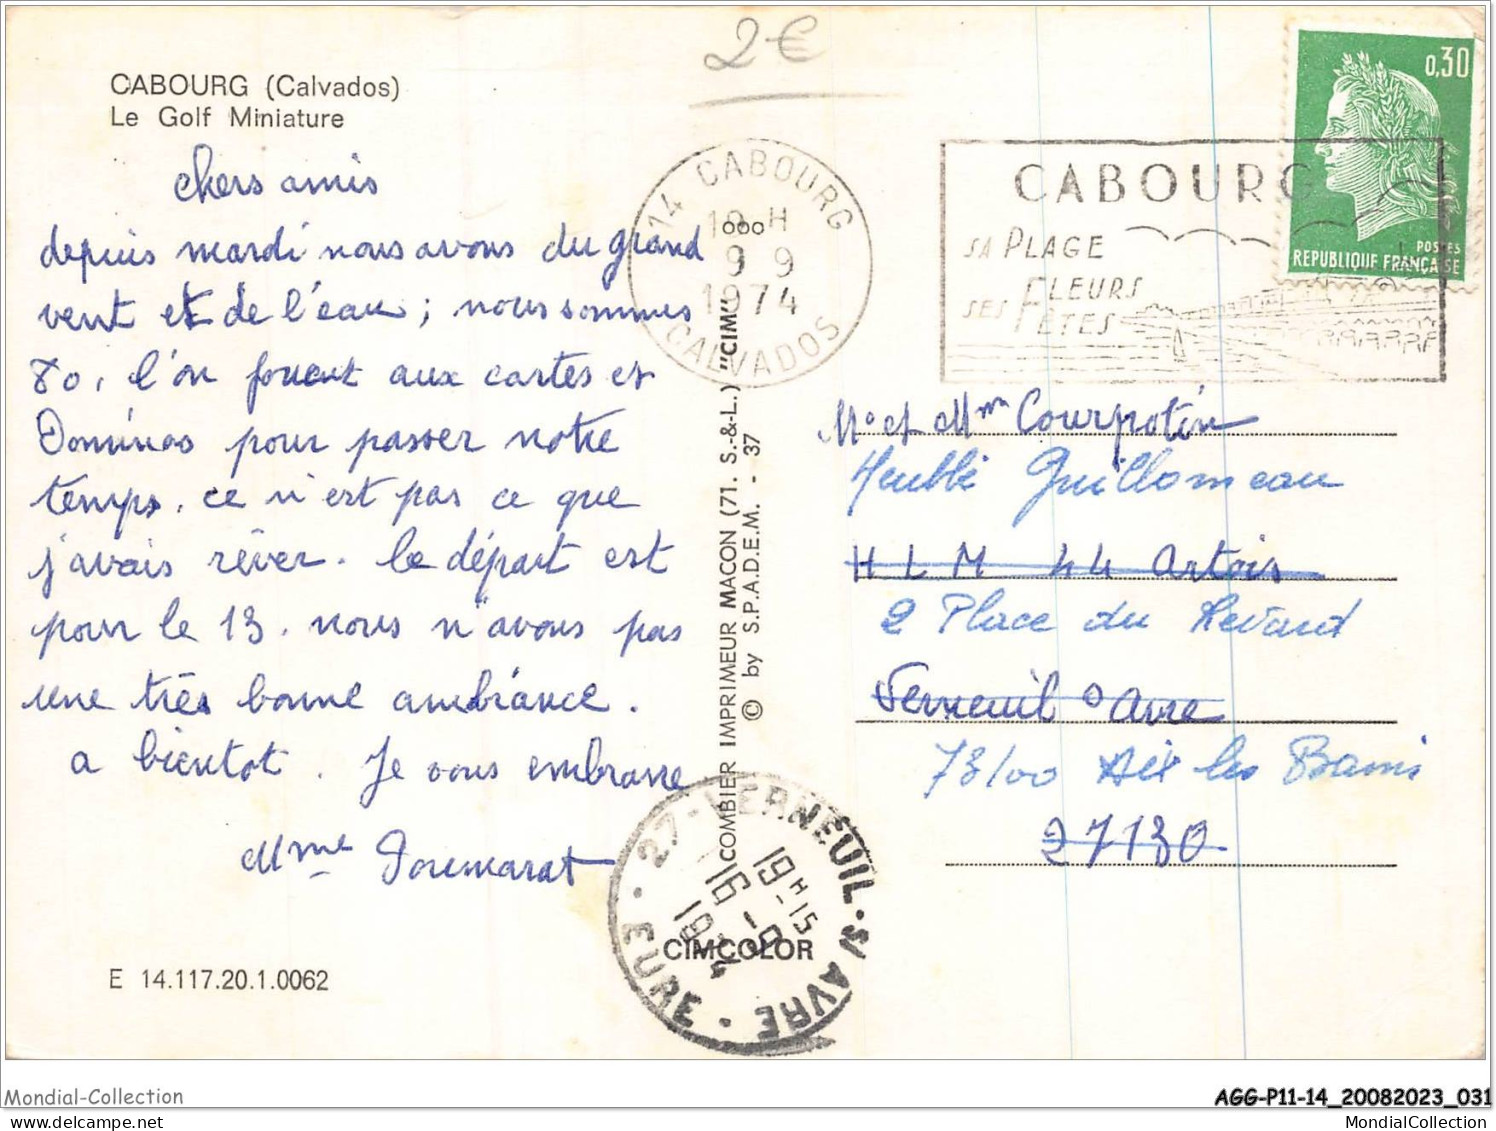 2€
CABOURG (Calvados)
Le Golf Miniature
chers amis
depuis mardi nous avons du grand
vent et de l'eau ; nous sommes
80, l'on jouent aux cartes et
Dominos pour passer notre
temps. ce n'est pas ce que
j'avais rêver. le départ est
pour le 13. nous n'avons pas
une très bonne ambiance.
a bientot. Je vous embrasse
Mme
E 14.117.20.1.0062
14 CABOURG
CALVADOS
9 9
1974
COMBIER IMPRIMEUR MACON (71. S.-&-L.) "CIM"
© by S.P.A.D.E.M. - 37
CIMCOLOR
27 - VERNEUIL - S/ AVRE - EURE -
19 H 15
16 - 9
1974
CABOURG
SA PLAGE
SES FLEURS
FÊTES
0,30
POSTES
REPUBLIQUE FRANÇAISE
Mr et Mme Courpotin
Meublé Guillomeau
H L M 44 Artois
2 Place du Revard
Verneuil s Avre
73100 Aix les Bains
27130
Mondial-Collection
https://www.delcampe.net/fr/collections/store/MondialCollection
AGG-P11-14_20082023_031
MondialCollection